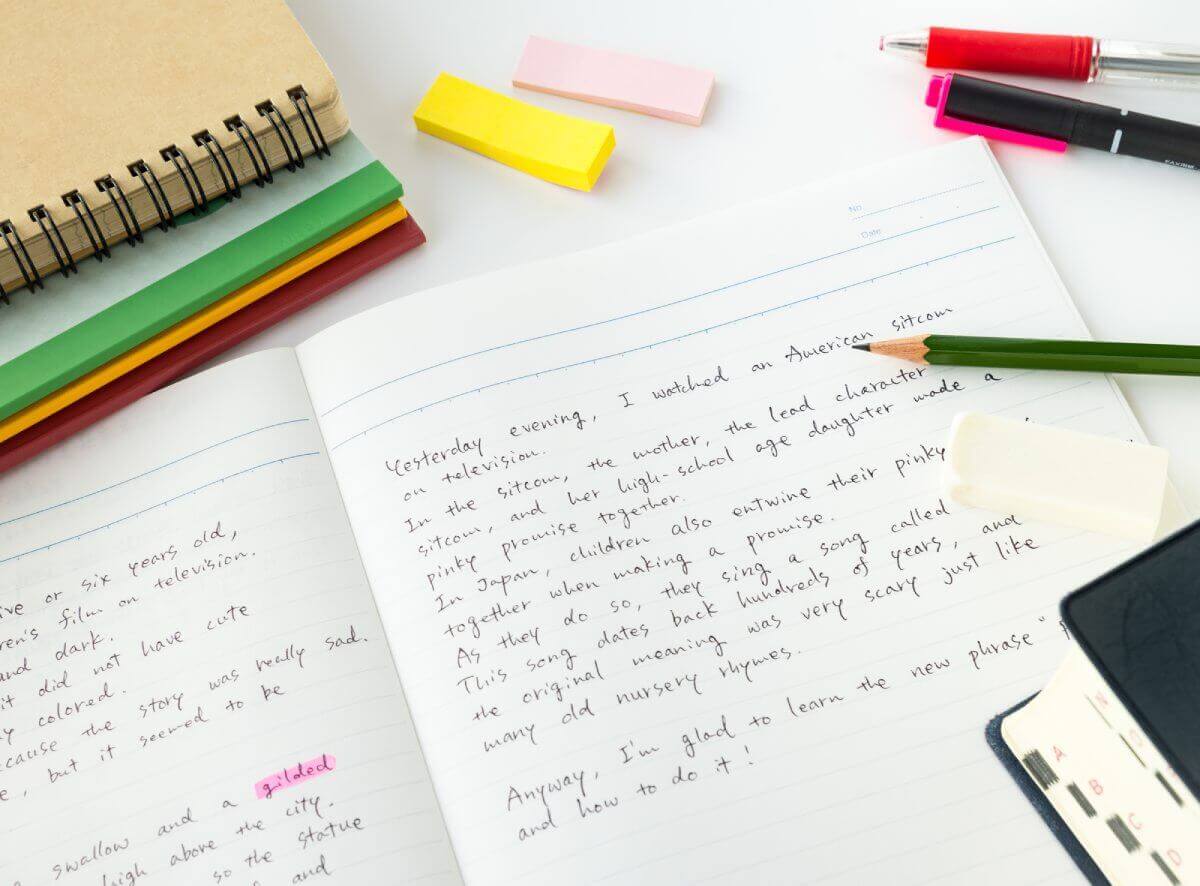 ive or six years old,
ren's film on television.
and dark.
it did not have cute
y colored.
cause the story was really sad.
e, but it seemed to be
swallow and a gilded
high above the city.
so the statue
and
No
Date
Yesterday evening, I watched an American sitcom
on television.
In the sitcom, the mother, the lead character
sitcom, and her high-school age daughter made a
pinky promise together.
In Japan, children also entwine their pinky
together when making a promise.
As they do so, they sing a song called
This song dates back hundreds of years, and
the original meaning was very scary just like
many old nursery rhymes.
Anyway, I'm glad to learn the new phrase "
and how to do it!
A
B
C
D